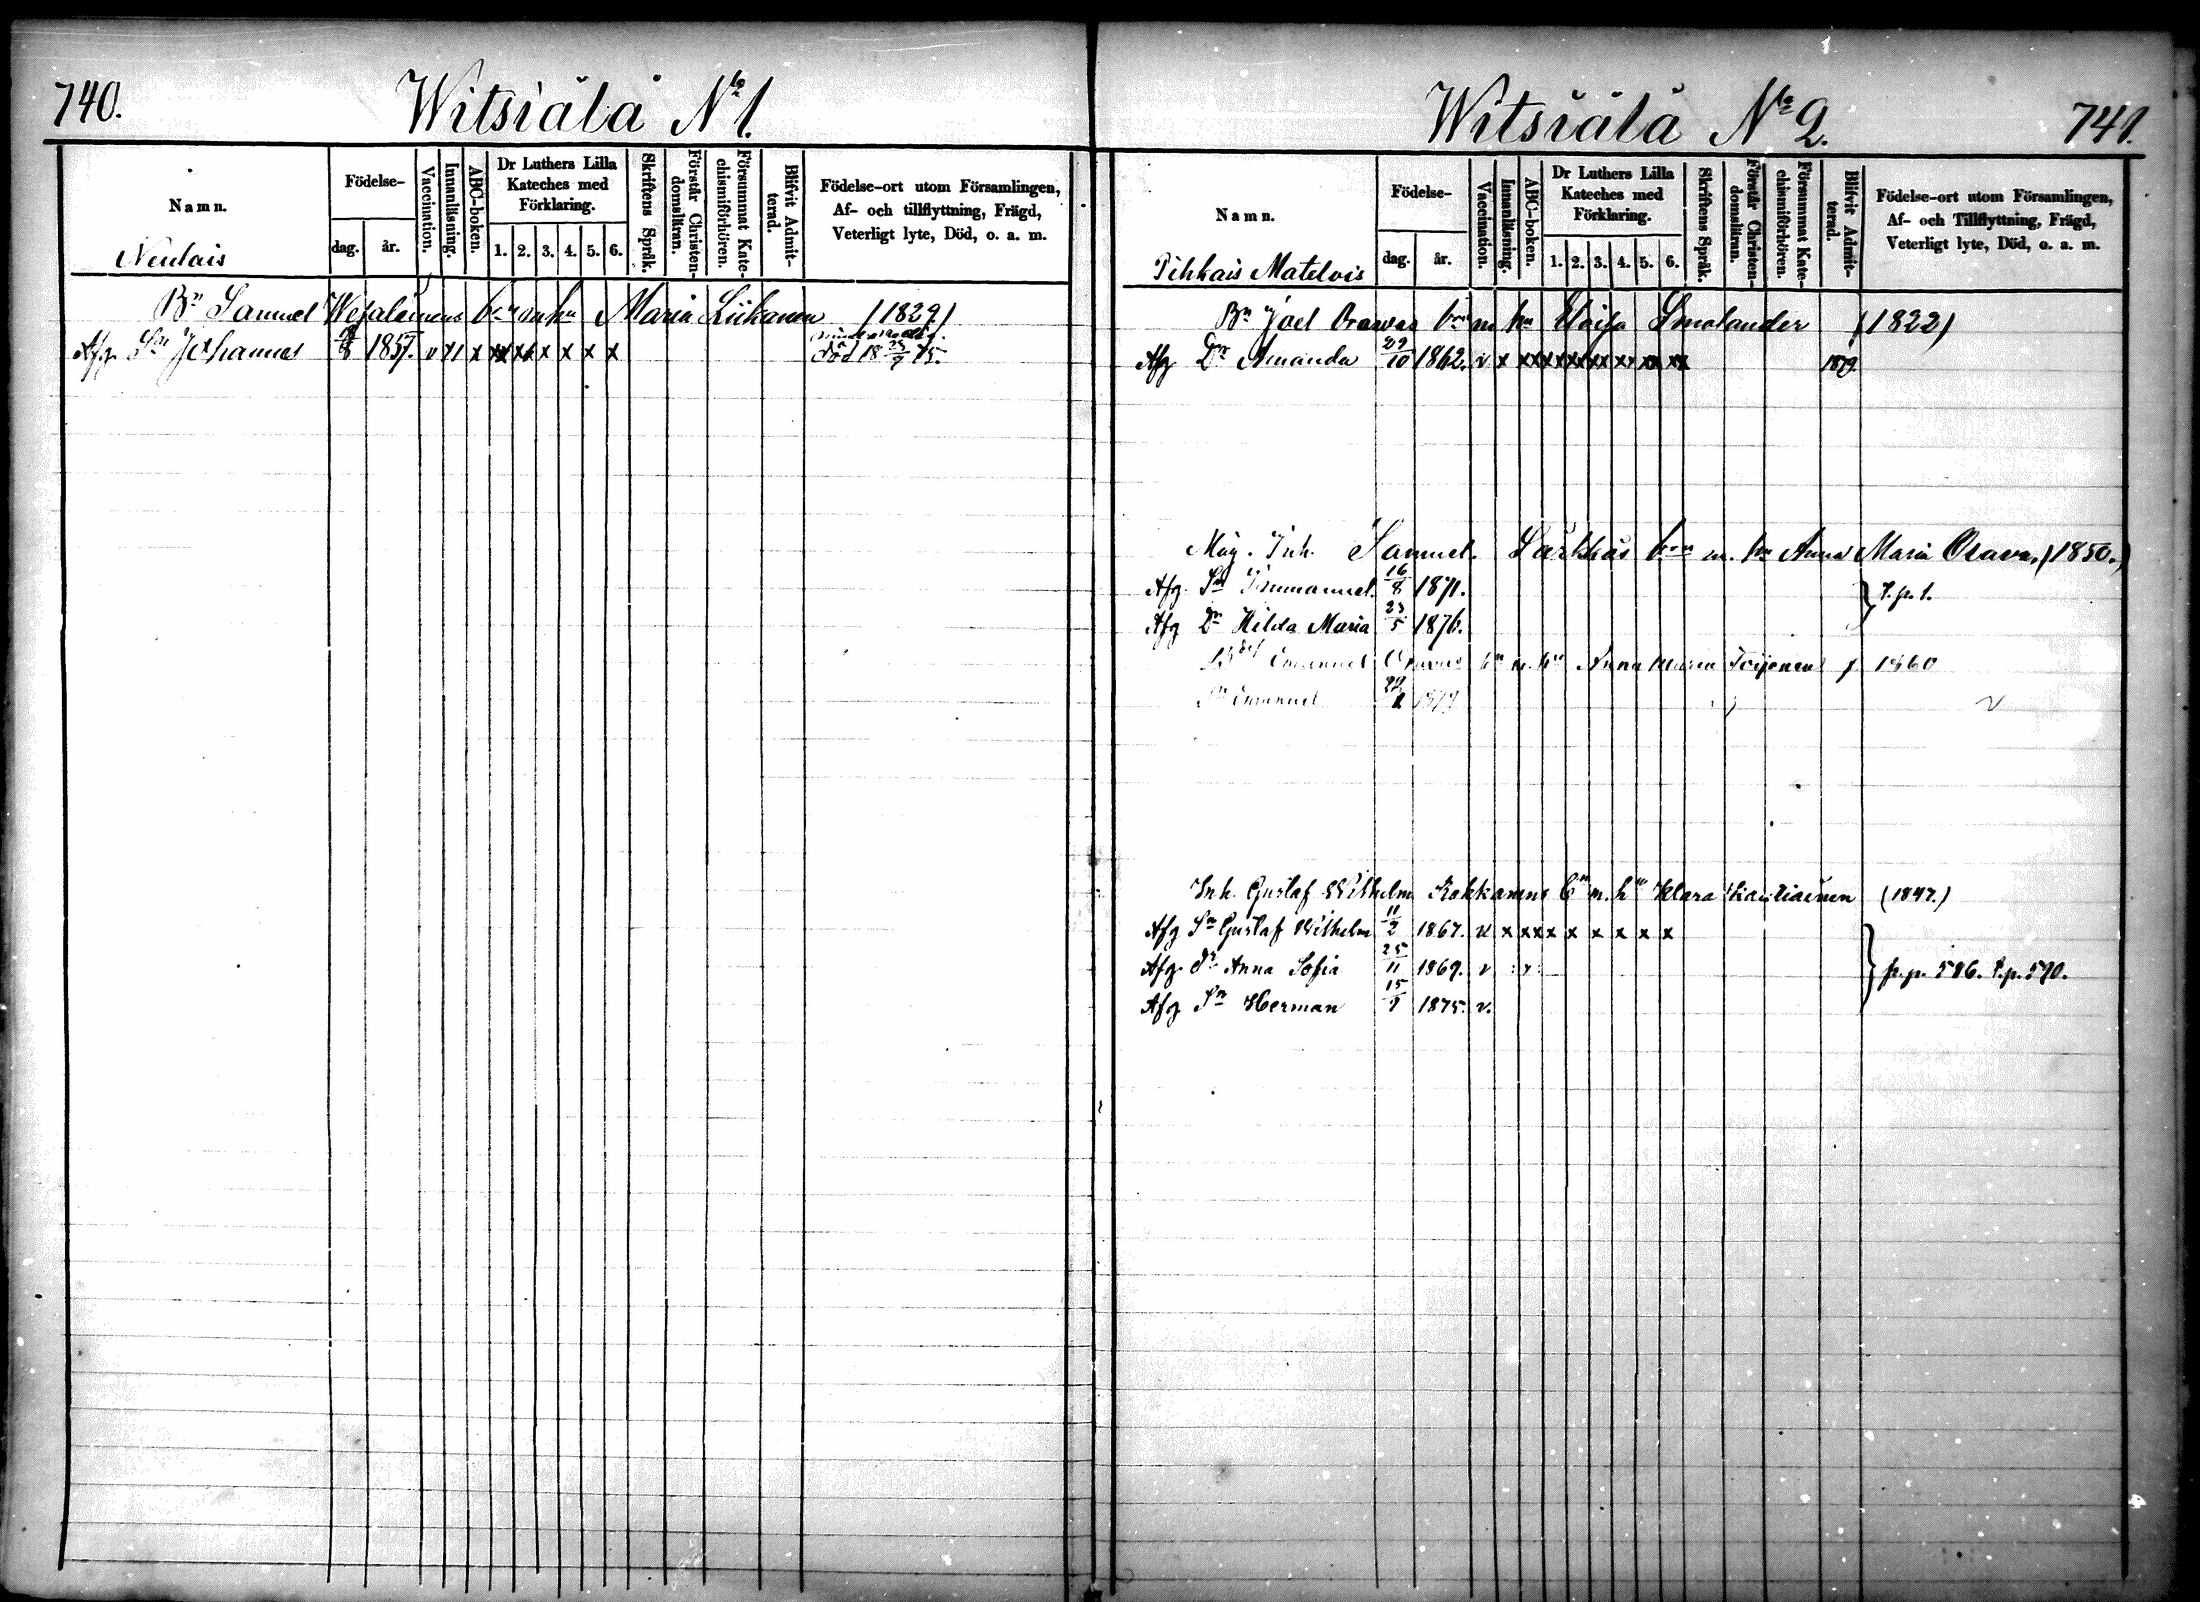 740.
Witsiälä No 1.
Namn.
Födelse-
dag.
år.
Vaccination.
Innanläsning.
ABC-boken.
Dr Luthers Lilla
Kateches med
Förklaring.
1. 2. 3. 4. 5. 6.
Skriftens Språk.
Förstår Christen-
domsläran.
Försummat Kate-
chismiförhören.
Blifvit Admit-
terad.
Födelse-ort utom Församlingen,
Af- och tillflyttning, Frägd,
Veterligt lyte, Död, o. a. m.
Neulais
Bn Samuel Wesaläinens bns m hu Maria Liikanen (1829)
Afg. Sn Johannes 8 1857. v x1 x xx xx x x x x död 18 23/7 75.
Witsiälä No 2.
741.
Namn.
Födelse-
dag.
år.
Vaccination.
Innanläsning.
ABC-boken.
Dr Luthers Lilla
Kateches med
Förklaring.
1. 2. 3. 4. 5. 6.
Skriftens Språk.
Förstår Christen-
domsläran.
Försummat Kate-
chismiförhören.
Blifvit Admit-
terad.
Födelse-ort utom Församlingen,
Af- och Tillflyttning, Frägd,
Veterligt lyte, Död, o. a. m.
Pihkais Matelvis
Bn Joel Oravas bn m hu Eloisa Smolander (1822)
Afg Dr Amanda 29/10 1862. v x xx xx xx xx xx xx xx 1879
Måg. Inh. Samuel Särkkäs bn m. hu Anna Maria Orava, (1850.)
Afg. Sn Immanuel. 16/8 1871. } T. p. 1.
Afg Dr Hilda Maria 23/5 1876.
Emanuel Oravas bn m. hu Anna Maria Toijonen f 1860
Sn Emanuel v
Inh. Gustaf Wilhelm Kokkonens bn m. hu Klara Kautiainen (1847.)
Afg Sn Gustaf Wilhelm 11/2 1867. v x xx x x x x x x
Afg. dr Anna Sofia 25/11 1869. v x } p. p. 586. t. p. 590.
Afg Sn Herman 15/9 1875. v.